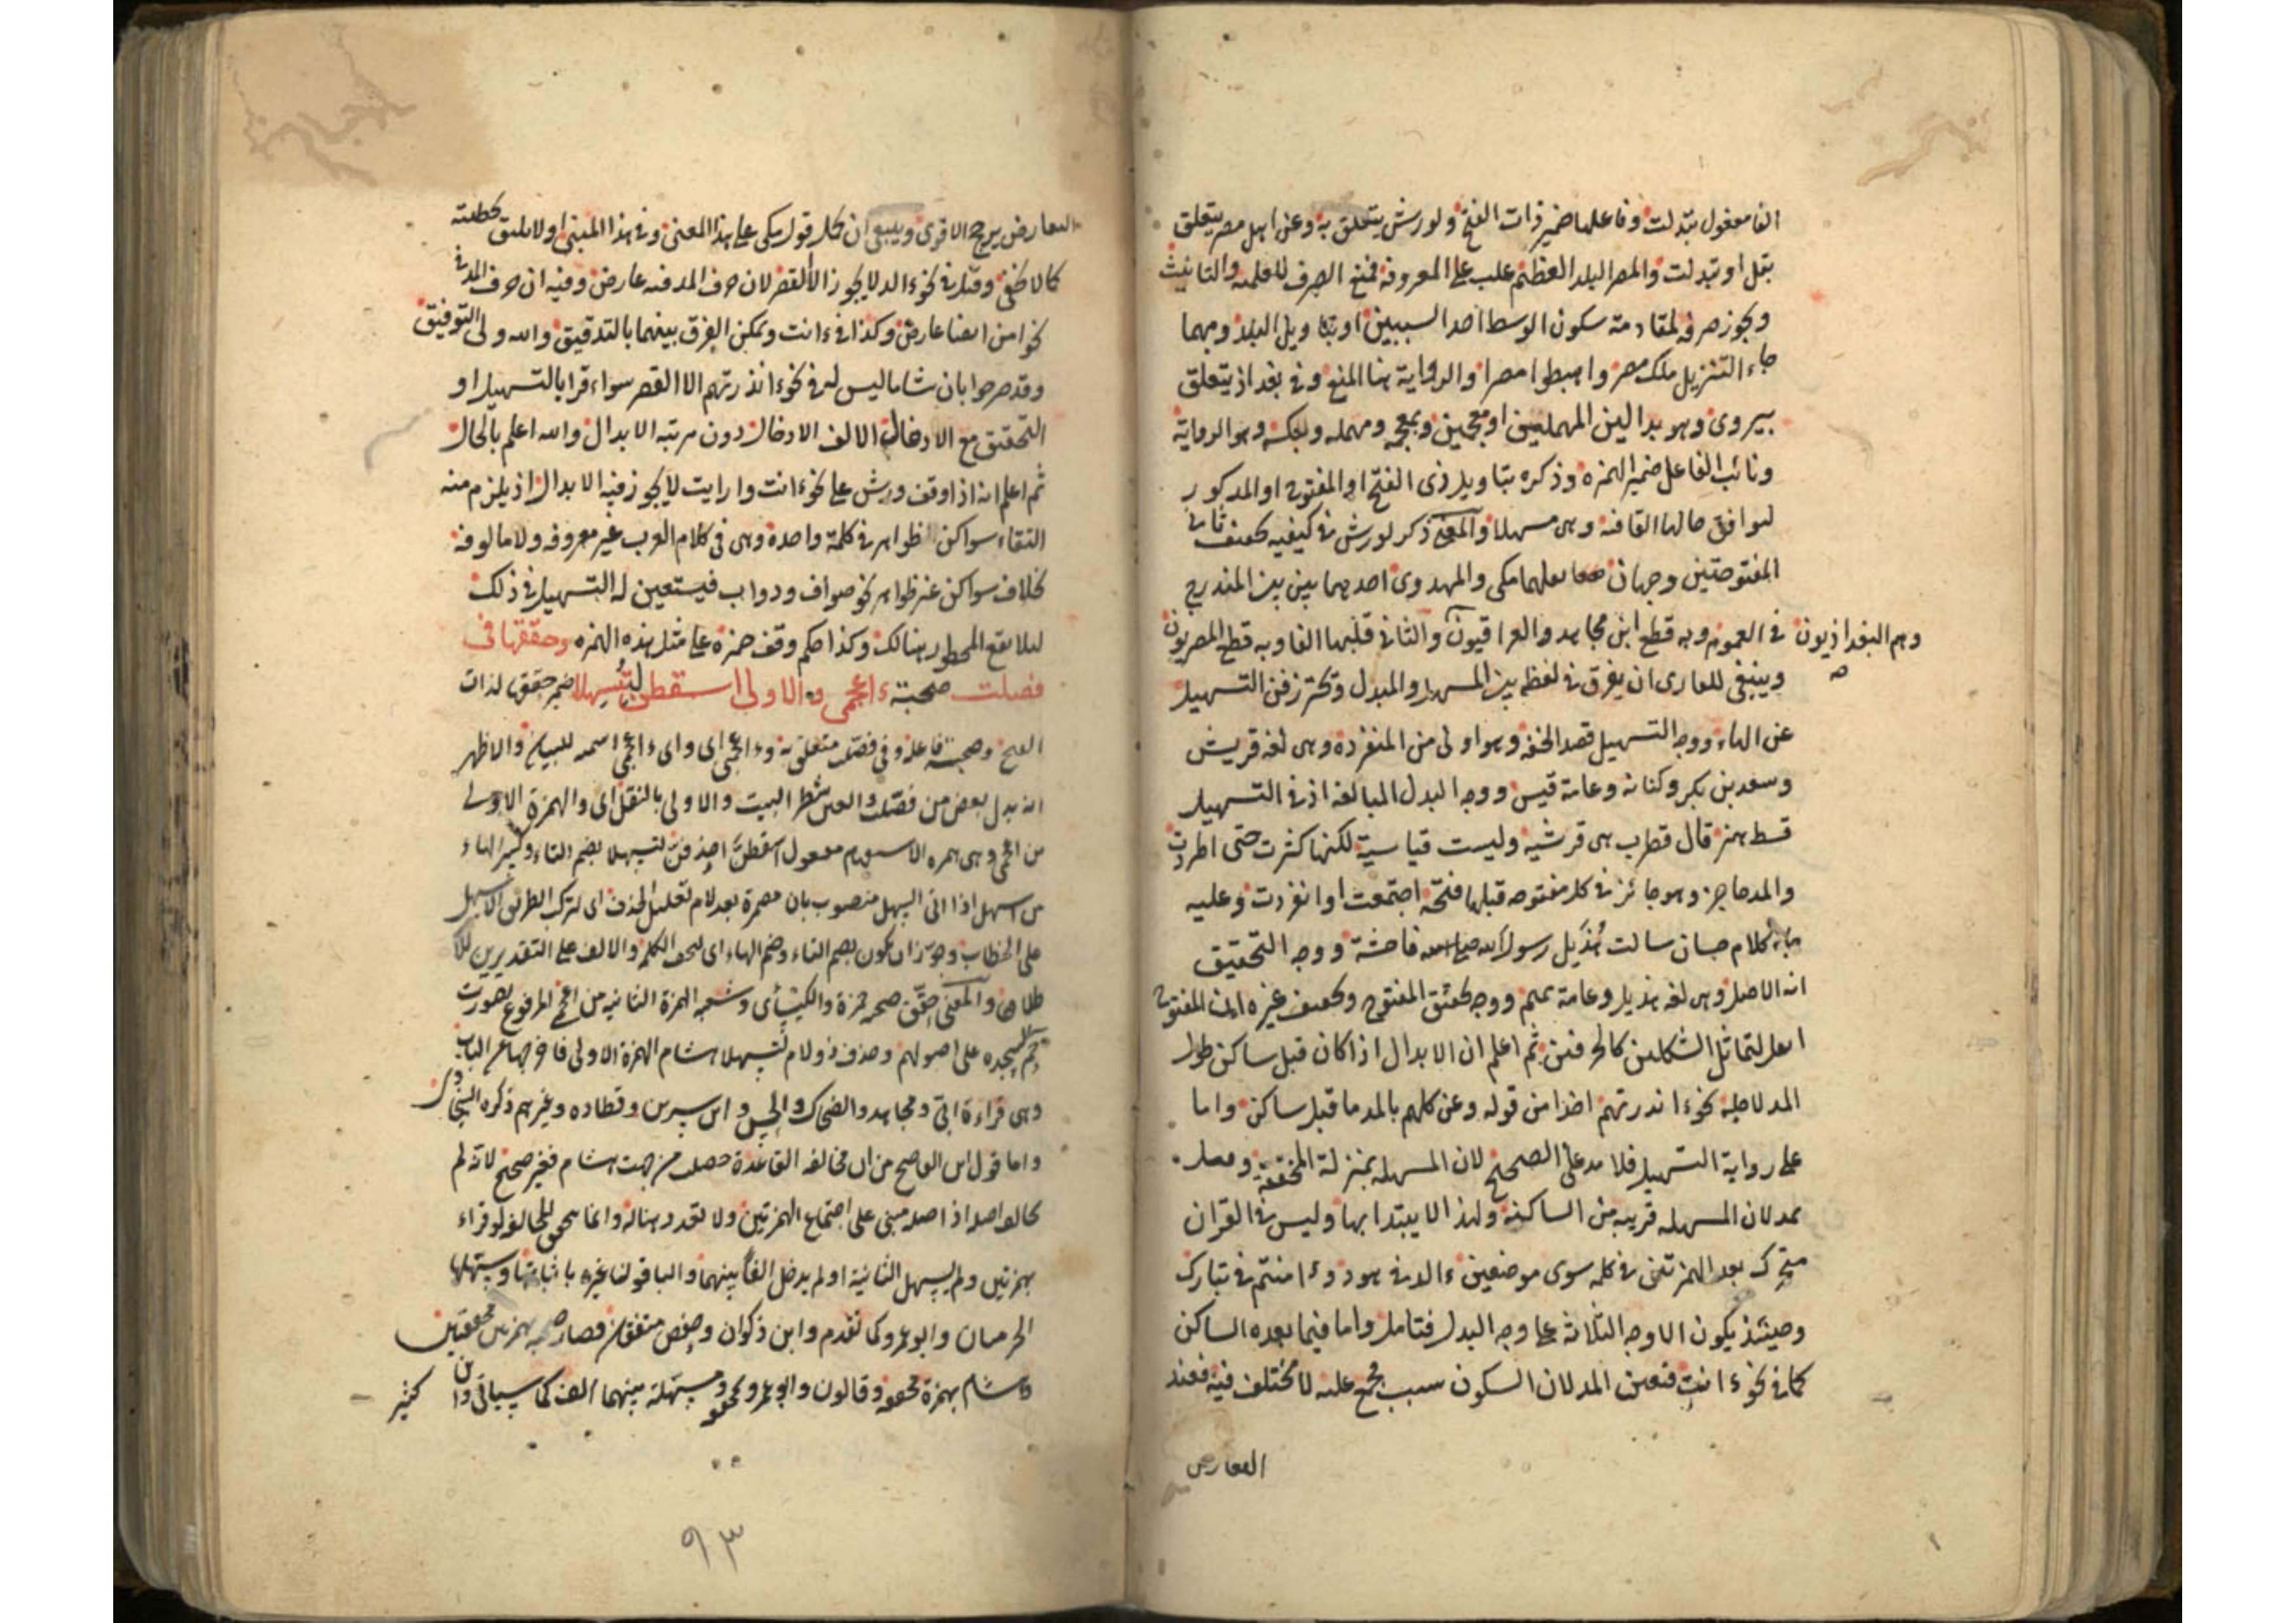 الفا مفعول تبدلت وفاعلها ضمير ذات الفتح ولورش يتعلق به وعن اهل مصر يتعلق
بقل او تبدلت والمصر البلد العظيم غلب على المعروفة فمنع الصرف للعلمية والتانيث
ويجوز صرفه لمقاومة سكون الوسط احد السببين او بتاويل البلد ومهما
جاء التنزيل ملك مصر واهبطوا مصرا والرواية هنا المنع وفي بغداد يتعلق
بيروى وهو بدالين المهملتين او معجمتين وبمعجمه ومهمله وبعكسه وهو الرواية
ونائب الفاعل ضمير الهمزه وذكره بتاويل ذي الفتح او المفتوح او المذكور
ليوافق حالها القافية وهي مسهلا والمعنى ذكر لورش في كيفيه تخفيف ثاني
المفتوحتين وجهان نقلهما مكي والمهدوي احدهما بين بين المندرج
في العموم وبه قطع ابن مجاهد والعراقيون والثاني قلبها الفا وبه قطع المصريون
وهم البغداذيون
صح
وينبغي للقاري ان يفرق في لفظه بين المسهل والمبدل ويحترز في التسهيل
عن الهاء ووجه التسهيل قصد الخفه وهو اولى من المنفرده وهي لغه قريش
وسعد بن بكر وكنانه وعامة قيس ووجه البدل المبالغة اذ في التسهيل
قسط همز قال قطرب هي قرشيه وليست قياسية لكنها كثرت حتى اطردت
والمد حاجز وهو جائز في كل مفتوحه قبلها فتحة اجتمعت او انفردت وعليه
جاء كلام حسان سالت هذيل رسول الله فاحشة ووجه التحقيق
انه الاصل وهي لغه هذيل وعامة تميم ووجه تحقيق المفتوح وتخفيف غيره ان المفتوح
اثقل لتماثل الشكلين كالحرفين ثم اعلم ان الابدال اذا كان قبل ساكن طول
المد لاجله نحو ءانذرتهم اخذا من قوله وعن كلهم بالمد ما قبل ساكن واما
على رواية التسهيل فلا مد على الصحيح لان المسهله بمنزلة المحققة وقيل
يمد لان المسهله قريبه من الساكنه ولهذا لا يبتدا بها وليس في القران
متحرك بعد الهمزتين في كلمه سوى موضعين ءالد في هود وءامنتم في تبارك
وحينئذ يكون الاوجه الثلاثة على وجه البدل فتامل واما فيما بعده الساكن
كما في نحو ءانت فتعين المد لان السكون سبب مجمع عليه لا مختلف فيه فعند
التعارض
التعارض يرجح الاقوى وينبغي ان يحمل قول مكي على هذا المعنى وفي هذا المبنى اولا يليق تخطئته
كما لا يخفى وقيل في نحو ءالد لا يجوز الا القصر لان حرف المد فيه عارض وفيه ان حرف المد في
نحو امن ايضا عارض وكذا في ءانت ويمكن الفرق بينهما بالتدقيق والله ولي التوفيق
وقد صرحوا بان شاما ليس له في نحو ءانذرتهم الا القصر سواء قرا بالتسهيل او
التحقيق مع الادخال الالف الادخال دون مرتبه الابدال والله اعلم بالحال
ثم اعلم انه اذا وقف ورش على نحو ءانت وارايت لا يجوز فيه الابدال اذ يلزم منه
التقاء سواكن ظواهر في كلمة واحدة وهي في كلام العرب غير معروفه ولا مالوفه
بخلاف سواكن غير ظواهر نحو صواف ودواب فيستعين له التسهيل في ذلك
ليلا يقع المحظور هنالك وكذا حكم وقف حمزه على مثل هذه الهمزه وحققها في
فصلت صحبة ءاعجمي والاولى اسقطن لتسهلا ضمير حققها لذات
الفتح وصحبة فاعله وفي فصلت متعلق به وءاعجمي اي وءاعجمي اسمه للبيان والاظهر
انه بدل بعض من فصلت والعين شطر البيت والاولى بالنقل اي والهمزة الاولى
من اعجمي وهي همزه الاستفهام مفعول اسقطن احذفن لتسهلا بضم التاء وكسر الهاء
من اسهل اذا اتى السهل منصوب بان مضمرة بعد لام تعليل الحذف اي لتركب الطريق الاسهل
على الخطاب وجوز ان يكون بضم التاء وضم الهاء اي لتخف الكلمه والالف على التقديرين للاطلاق
والمعنى حقق صحبه حمزة والكسائي وشعبه الهمزة الثانيه من اعجمي المرفوع بصورت
حم السجده على اصولهم وحذف ذو لام لتسهلا هشام الهمزة الاولى فاخرجها عن الباب
وهي قراءة ابي ومجاهد والضحاك والحسن وابن سيرين وقتاده وغيرهم ذكره السخاوي
واما قول ابن القاصح من ان مخالفه القاعدة حصلت من جهت هشام فغير صحيح لانه لم
يخالف اصله اذ اصله مبني على اجتماع الهمزتين ولا تعدد هنا له وانما يتحقق المخالفه لو قراء
بهمزتين ولم يسهل الثانية او لم يدخل الفا بينهما والباقون غيره باثباتها وسهلها
الحرميان وابو عمرو كما تقدم وابن ذكوان وحفص متفقان فصار صحبه بهمزتين محققتين
وهشام بهمزة محققه وقالون وابو عمرو بمحققه ومسهلة بينهما الف كما سياتي وابن كثير
٩٣